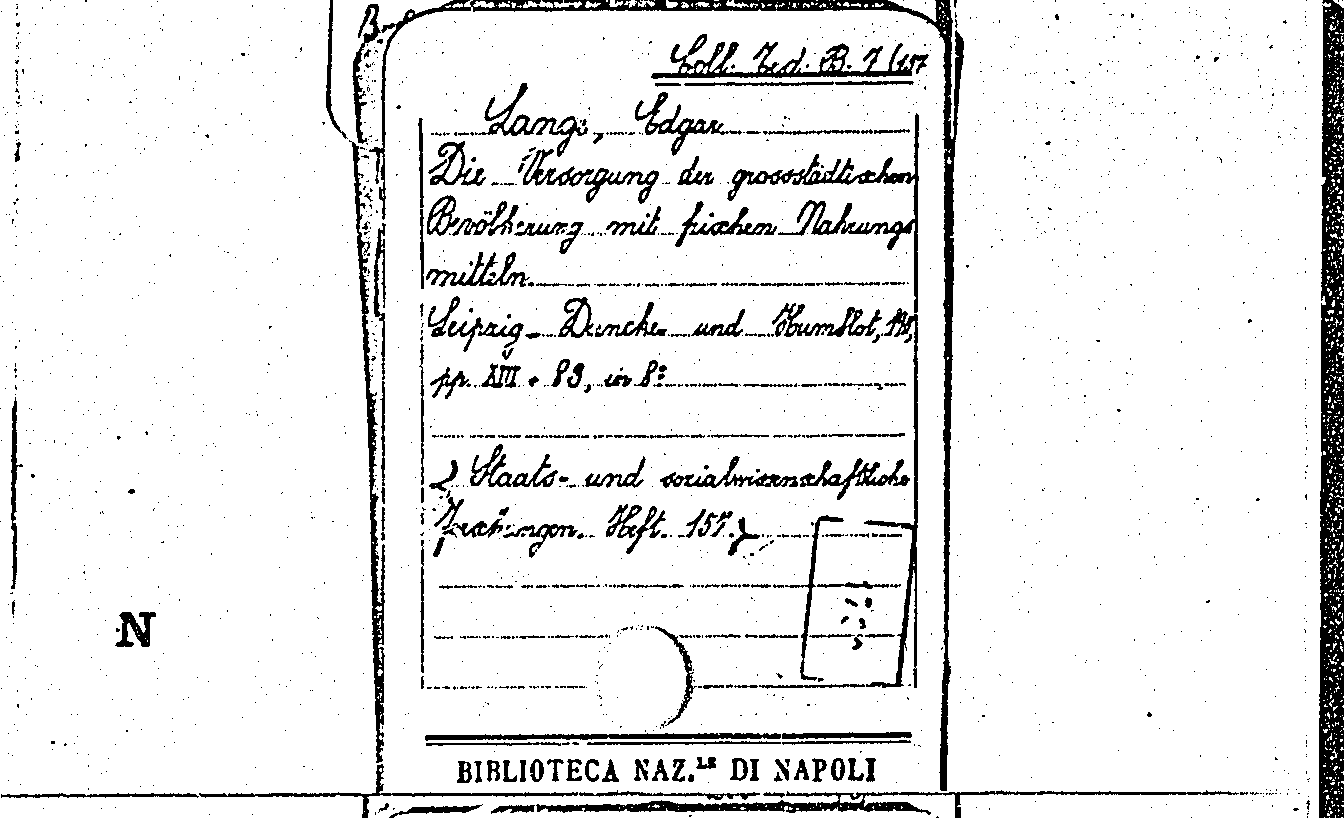 Coll. Ted. B. 7/157
Lange, Edgar
Die Versorgung der grossstädtischen
Bevölkerung mit frischen Nahrungs
mitteln.
Leipzig - Duncker und Humblot,
pp. XIII + 83, in 8º
Staats- und sozialwissenschaftliche
Forschungen. Heft. 157.
N
BIBLIOTECA NAZ.LE DI NAPOLI